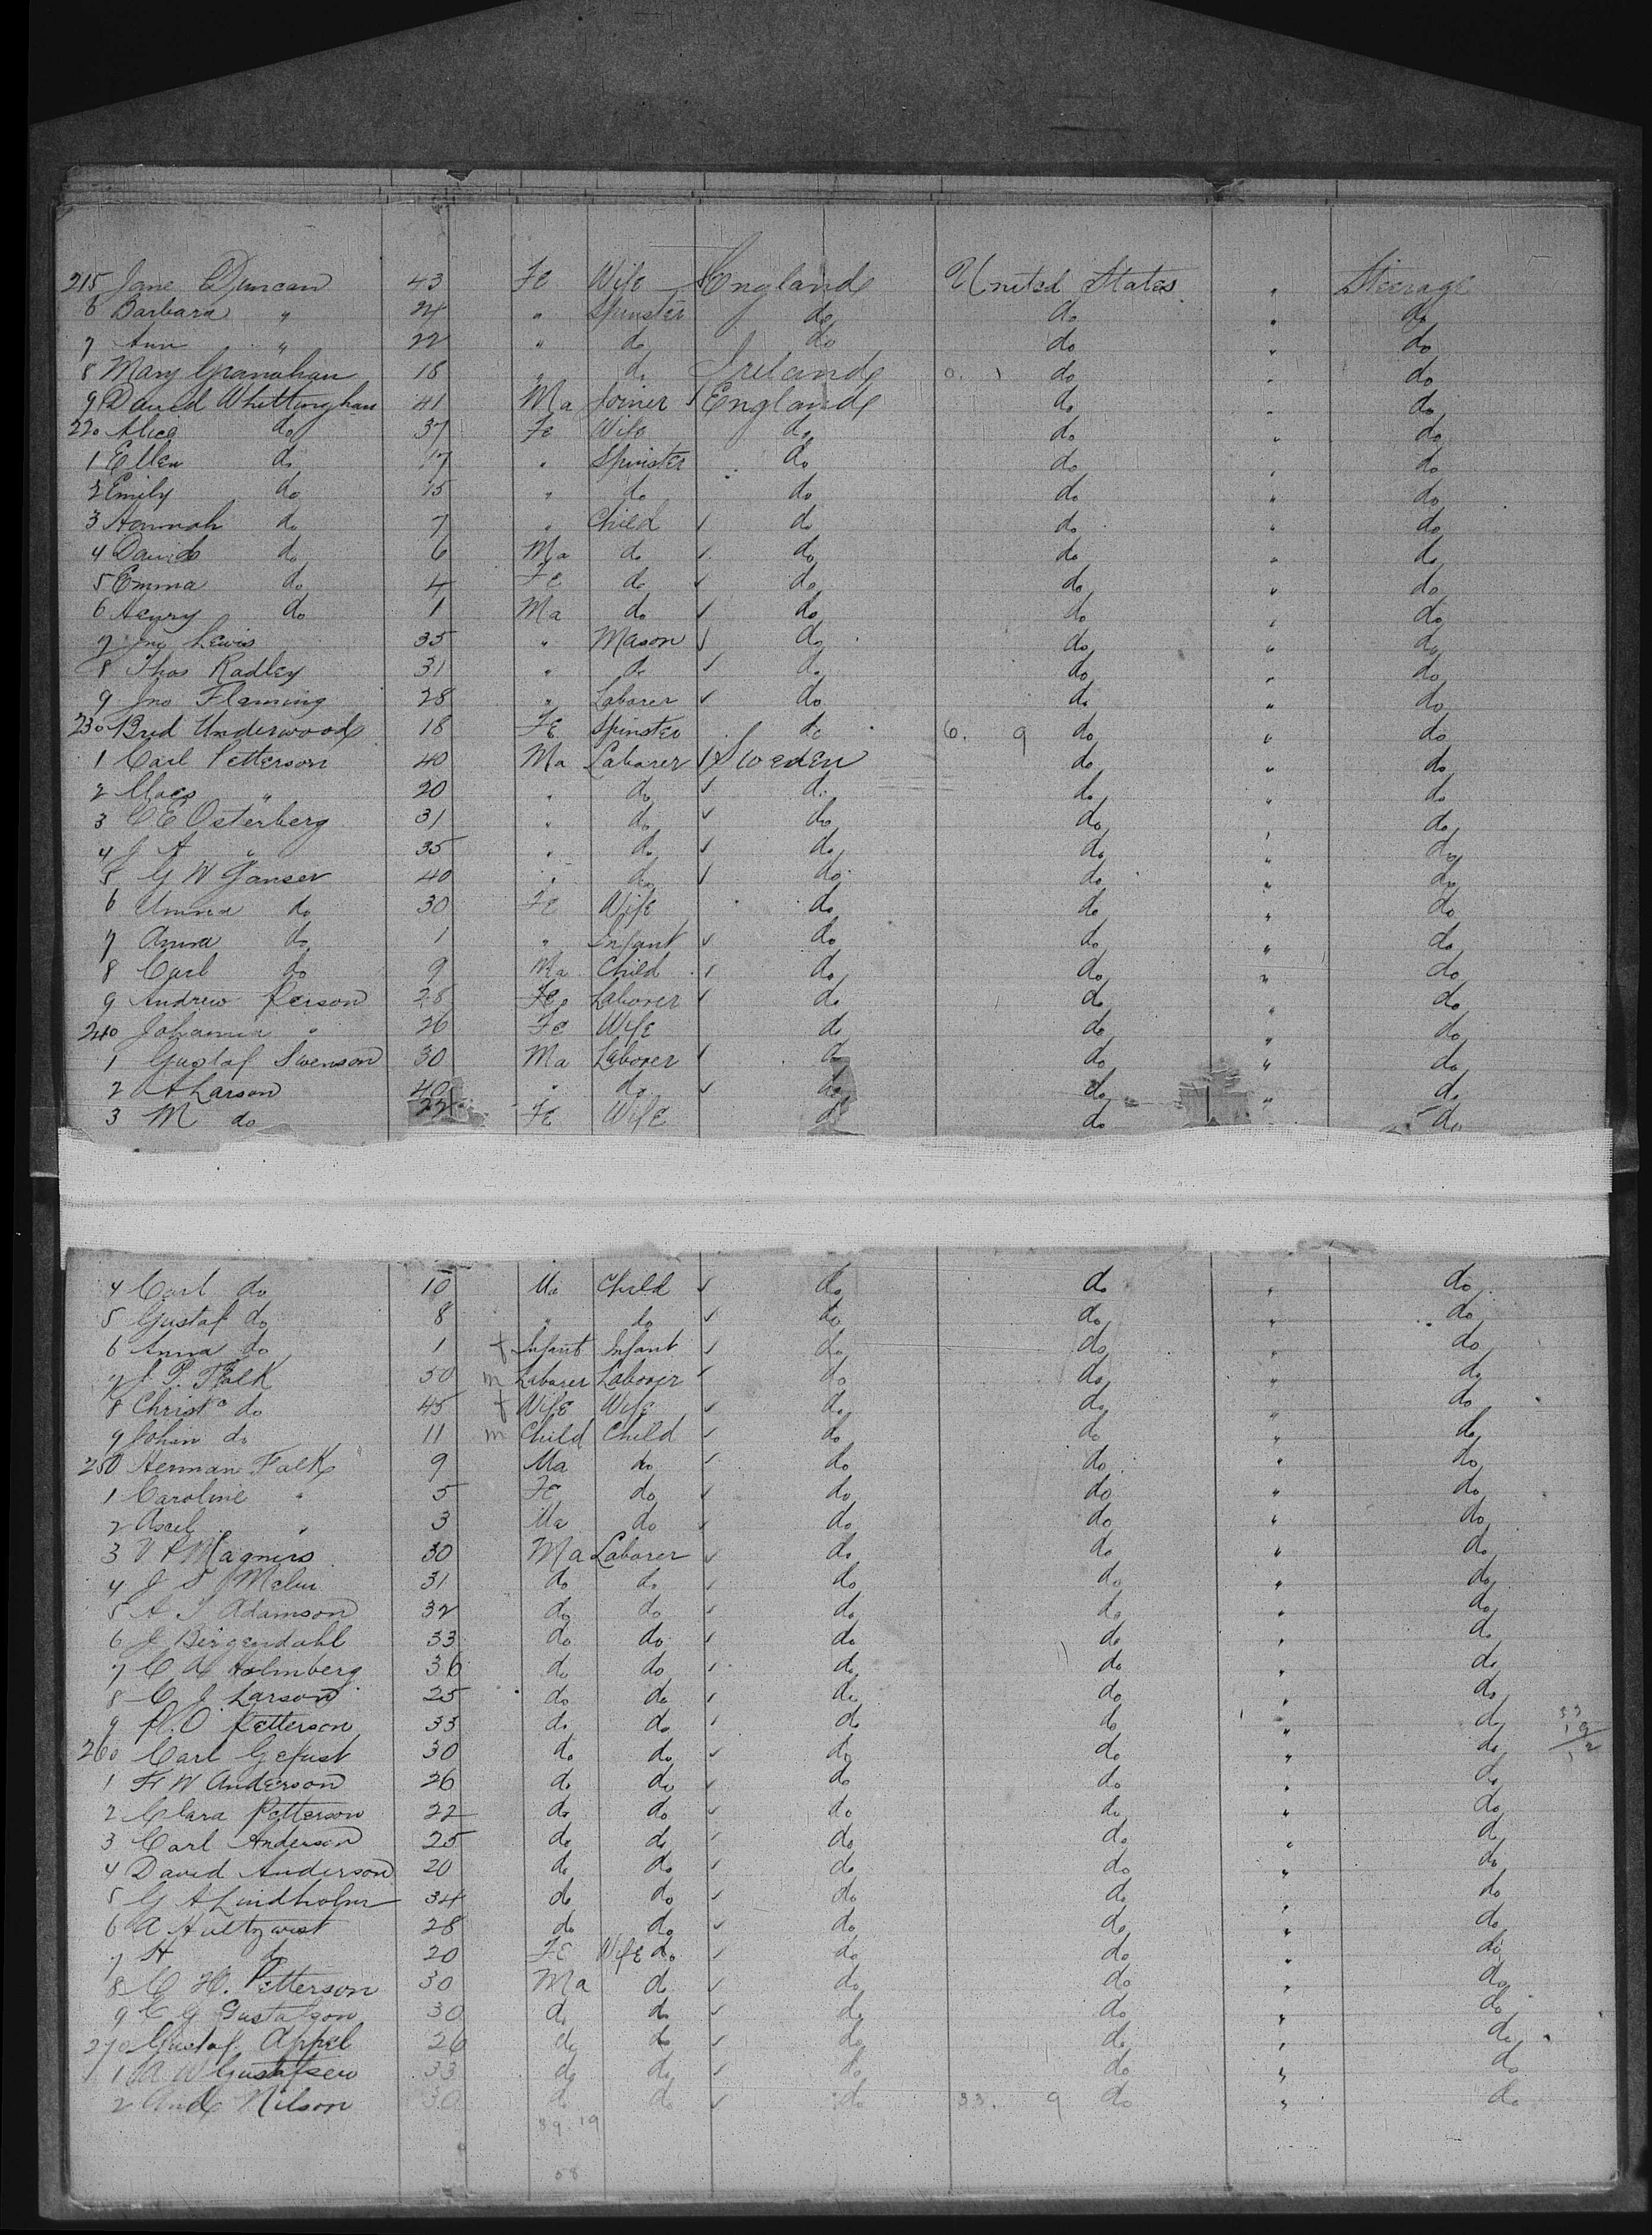 215 Jane Duncan 43 Fe Wife England United States " Steerage
6 Barbara " 24 " Spinster do do " do
7 Ann " 22 " do do do " do
8 Mary Granahan 18 " do Ireland 0. 1 do " do
9 David Whittingham 41 Ma Joiner England do " do
220 Alice do 37 Fe Wife do do " do
1 Ellen do 17 " Spinster do do " do
2 Emily do 15 " do do do " do
3 Hannah do 7 " Child do do " do
4 David do 6 Ma do do do " do
5 Emma do 4 Fe do do do " do
6 Henry do 1 Ma do do do " do
7 Jno Lewis 35 " Mason do do " do
8 Thos Radley 31 " do do do " do
9 Jno Flaming 28 " Laborer do do " do
230 Brid Underwood 18 Fe Spinster do 6. 9 do " do
1 Carl Petterson 40 Ma Laborer Sweden do " do
2 Claes " 20 " do do do " do
3 C E Osterberg 31 " do do do " do
4 J A " 35 " do do do " do
5 G W Janser 40 " do do do " do
6 Unna do 30 Fe Wife do do " do
7 Anna do 1 " Infant do do " do
8 Carl do 9 Ma Child do do " do
9 Andrew Person 28 Fe Laborer do do " do
240 Johanna " 26 Fe Wife do do " do
1 Gustaf Swenson 30 Ma Laborer do do " do
2 A Larson 40 " do do do " do
3 M do 22 Fe Wife do do do
4 Carl do 10 Ma Child do do " do
5 Gustaf do 8 " do do do " do
6 Anna do 1 f Infant Infant do do " do
7 J. P. Falk 50 m Laborer Laborer do do " do
8 Christ do 45 f Wife Wife do do " do
9 Johan do 11 m Child Child do do " do
250 Herman Falk 9 Ma do do do " do
1 Caroline " 5 Fe do do do " do
2 Axel " 3 Ma do do do " do
3 V P Magners 30 Ma Laborer do do " do
4 J S Malm 31 do do do do " do
5 A T Adamson 32 do do do do " do
6 J Bergendahl 33 do do do do " do
7 C A Holmberg 36 do do do do " do
8 C J Larson 25 do do do do " do
9 A. O. Petterson 33 do do do do " do
260 Carl Gefust 30 do do do do " do
1 F W Anderson 26 do do do do " do
2 Clara Petterson 22 do do do do " do
3 Carl Anderson 25 do do do do " do
4 David Anderson 20 do do do do " do
5 G A Lindholm 34 do do do do " do
6 A Hultzwist 28 do do do do " do
7 H do 20 Fe Wife do do do " do
8 C H. Petterson 30 Ma do do do " do
9 C G Gustafson 30 do do do do " do
270 Gustaf Appel 26 do do do do " do
1 A W Gustafsen 33 do do do do " do
2 And Nilson 30 do do do 33. 9 do " do
39. 19
58